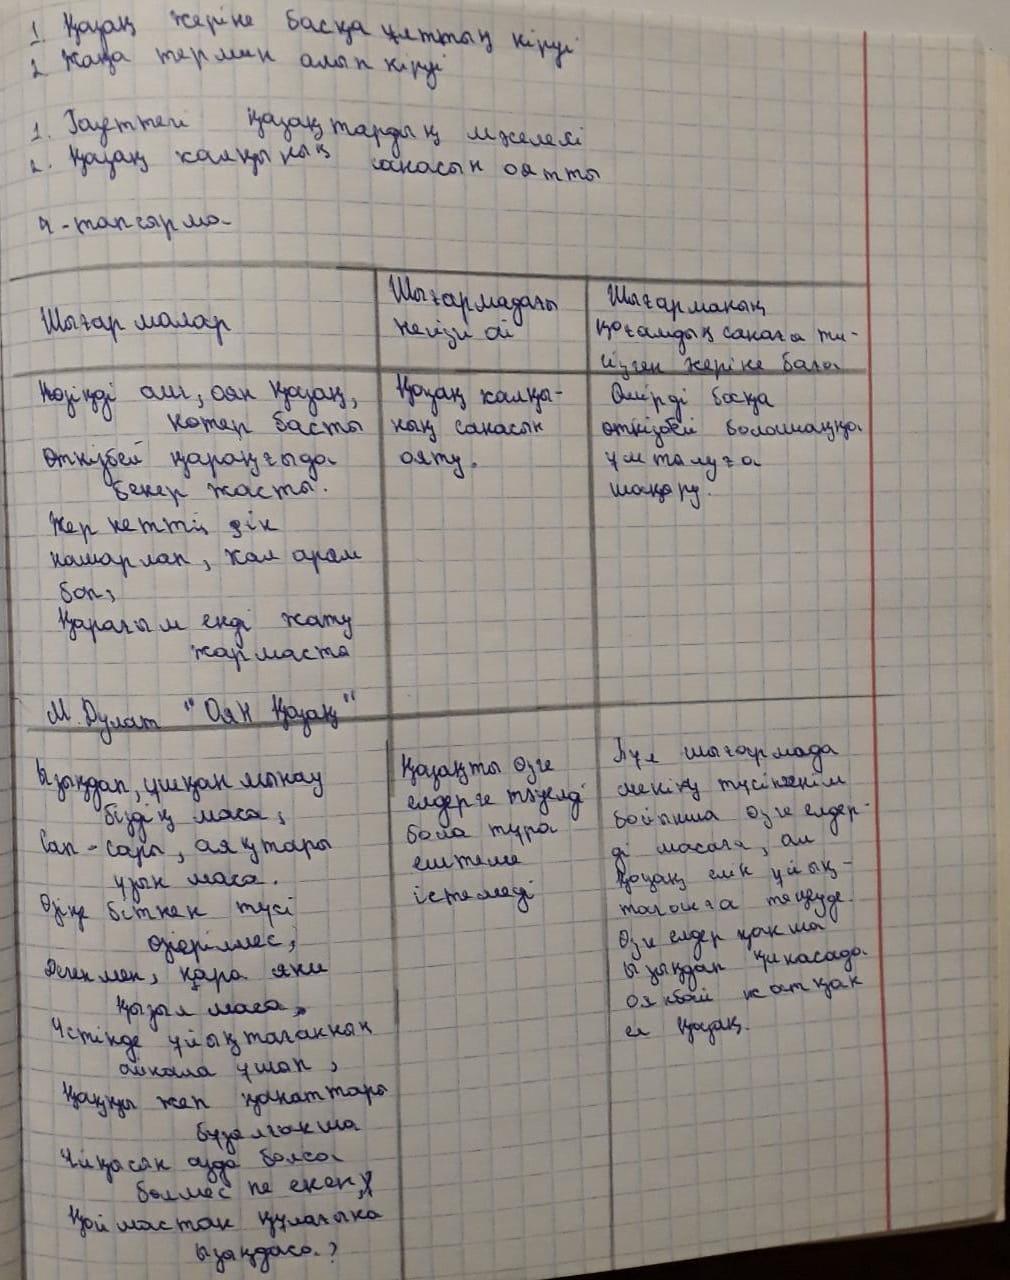 1. Қазақ жеріне басқа ұлттың кіруі
2. Жаңа термин алып кіруі
1. Газеттегі қазақтардың мәселесі
2. Қазақ халқының санасын оятты
4-тапсырма
Шығармалар
Шығармадағы
негізгі ой
Шығарманың
қоғамдық санаға ти-
гізген жеріне баға
Көзіңді аш, оян Қазақ,
көтер басты
Өткізбей қараңғыда
бекер жасты.
Жер кетті, дін
нашарлап, хал арам
боп,
Қарағым енді жату
жарамасты
Қазақ халқы-
ның санасын
ояту.
Өмірді босқа
өткізбей болашаққа
ұмтылуға
шақыру.
М. Дулат "Оян Қазақ"
Ызыңдап, ұшқан мынау
біздің маса,
Сап-сары, аяқтары
ұзын маса.
Өзіне біткен түсі
өзгерілмес,
Дегенмен, қара яки
қызыл маса.
Үстінде ұйықтағанның
айнала ұшып,
Қаққы жеп қанаттары
бұзылғанша
Ұйқысын аздап болса
бөлмес пе екен,
Қоймастан құлағына
ызыңдаса?
Қазақты өзге
елдерге тәуелді
бола тұра
ештеме
істемеді
Бұл шығармада
менің түсінігім
бойынша өзге елдер-
ді масаға, ал
Қазақ елін ұйық-
тағанға теңеуде.
Өзге елдер қанша
ызыңдап қинасада
оянбай жатқан
ел Қазақ.